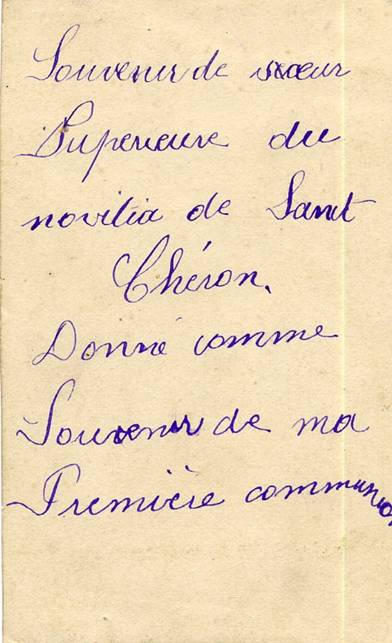 Souvenir de sœur
Superieure du
novitia de Saint
Chéron.
Donné comme
Souvenir de ma
Première communion